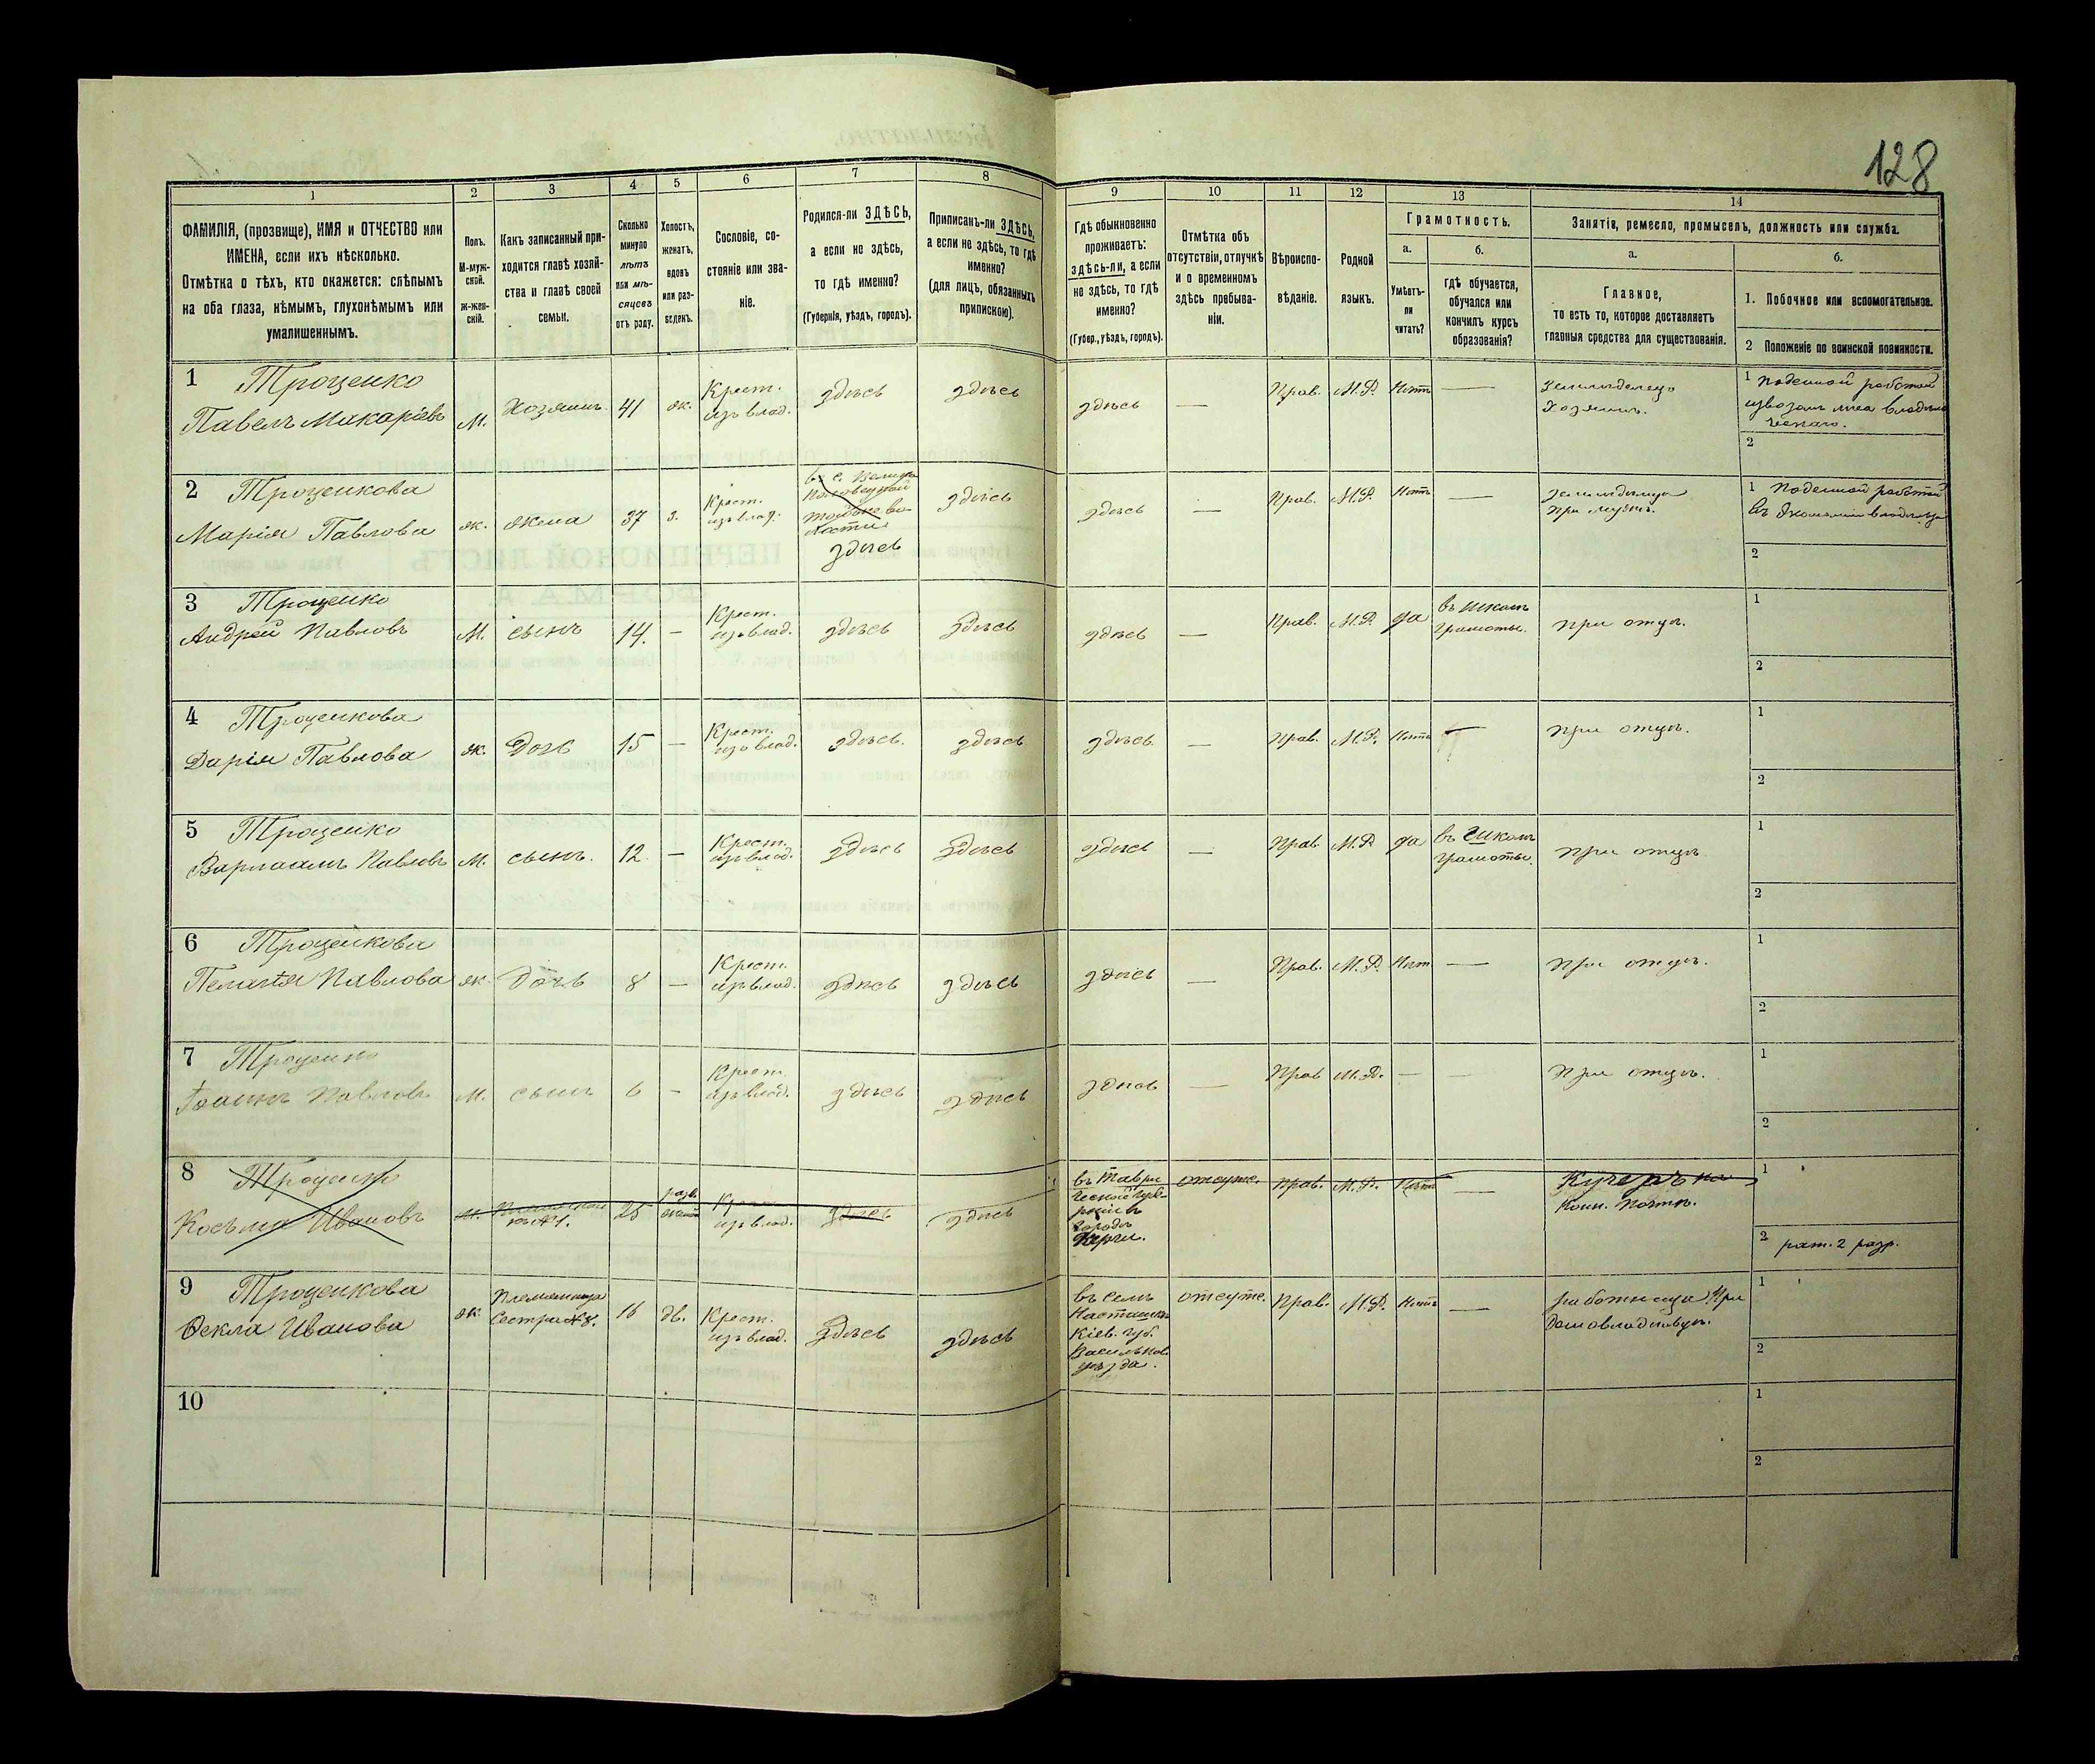 128
1
2
3
4
5
6
7
8
9
10
11
12
13
14
ФАМИЛІЯ, (прозвище), ИМЯ и ОТЧЕСТВО или
ИМЕНА, если ихъ нѣсколько.
Отмѣтка о тѣхъ, кто окажется: слѣпымъ
на оба глаза, нѣмымъ, глухонѣмымъ или
умалишеннымъ.
Полъ.
М-муж-
ской.
Ж-жен-
скій.
Какъ записанный при-
ходится главѣ хозяй-
ства и главѣ своей
семьи.
Сколько
минуло
лѣтъ
или мѣ-
сяцевъ
отъ роду.
Холостъ,
женатъ,
вдовъ
или раз-
веденъ.
Сословіе, со-
стояніе или зва-
ніе.
Родился-ли ЗДѢСЬ,
а если не здѣсь,
то гдѣ именно?
(Губернія, уѣздъ, городъ).
Приписанъ-ли ЗДѢСЬ,
а если не здѣсь, то гдѣ
именно?
(для лицъ, обязанныхъ
припискою).
Гдѣ обыкновенно
проживаетъ:
здѣсь-ли, а если
не здѣсь, то гдѣ
именно?
(Губер., уѣздъ, городъ).
Отмѣтка объ
отсутствіи, отлучкѣ
и о временномъ
здѣсь пребыва-
ніи.
Вѣроиспо-
вѣданіе.
Родной
языкъ.
Грамотность.
а.
Умѣетъ-
ли
читать?
б.
гдѣ обучается,
обучался или
кончилъ курсъ
образованія?
Занятія, ремесло, промыселъ, должность или служба.
а.
Главное,
то есть то, которое доставляетъ
главныя средства для существованія.
б.
1. Побочное или вспомогательное.
2 Положеніе по воинской повинности.
1 Троценко
Павелъ Макаріевъ
М.
Хозяинъ.
41
ж.
Крест.
изъ влад.
здѣсь
здѣсь
здѣсь
—
Прав.
М.Р.
Нѣтъ
—
Земледелецъ
Хозяинъ.
1 Поденной работой
2
2 Троценкова
Марія Павлова
ж.
жена
37
з.
Крест.
изъ влад.
здѣсь
здѣсь
здѣсь
—
Прав.
М.Р.
Нѣтъ
—
при мужѣ.
1 Поденной работой
2
3 Троценко
Андрей Павловъ
М.
сынъ
14.
—
Крест.
изъ влад.
здѣсь
здѣсь
здѣсь
—
Прав.
М.Р.
да
въ школѣ
грамоты.
при отцѣ.
1
2
4 Троценкова
Дарія Павлова
ж.
Дочь
15
—
Крест.
изъ влад.
здѣсь.
здѣсь
здѣсь
—
Прав.
М.Р.
Нѣтъ
—
при отцѣ.
1
2
5 Троценко
Варлаамъ Павловъ
М.
сынъ.
12.
—
Крест.
изъ влад.
здѣсь
здѣсь
здѣсь
—
Прав.
М.Р
да
въ школѣ
грамоты.
При отцѣ
1
2
6 Троценкова
Пелагія Павлова
ж.
дочь
8
—
Крест.
изъ влад.
здѣсь
здѣсь
здѣсь
—
Прав.
М.Р.
Нѣт
—
При отцѣ.
1
2
7 Троценко
Іоаннъ Павловъ
М.
сынъ
6
—
Крест.
изъ влад.
здѣсь
здѣсь
здѣсь
—
Прав
М.Р.
—
—
При отцѣ.
1
2
8 Троценко
Косьма Ивановъ
М.
25
изъ влад.
здѣсь
здѣсь
въ Таври
ческой губе-
рніи въ
городѣ
Керчи.
отсутс.
Прав.
М.Р.
Нѣтъ
—
Кучеръ на
Конн. Почтѣ.
1
2 рат. 2 разр.
9 Троценкова
Ѳекла Иванова
ж.
Племянница
16
дв.
Крест.
изъ влад.
здѣсь
здѣсь
въ селѣ
Насташкѣ
Кіев. губ.
Васильков.
уѣзда.
отсутс.
Прав.
М.Р.
Нѣтъ
—
работница При
Домовладѣльцѣ.
1
2
10
1
2